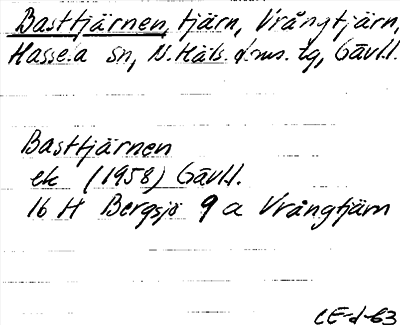 Basttjärnen, tjärn, Vrångtjärn,
Hassela sn, N. Häls. doms. tg, Gävl.l.
Basttjärnen
ek (1958) Gävl.l.
16 H Bergsjö 9 a Vrångtjärn
CE-d-63